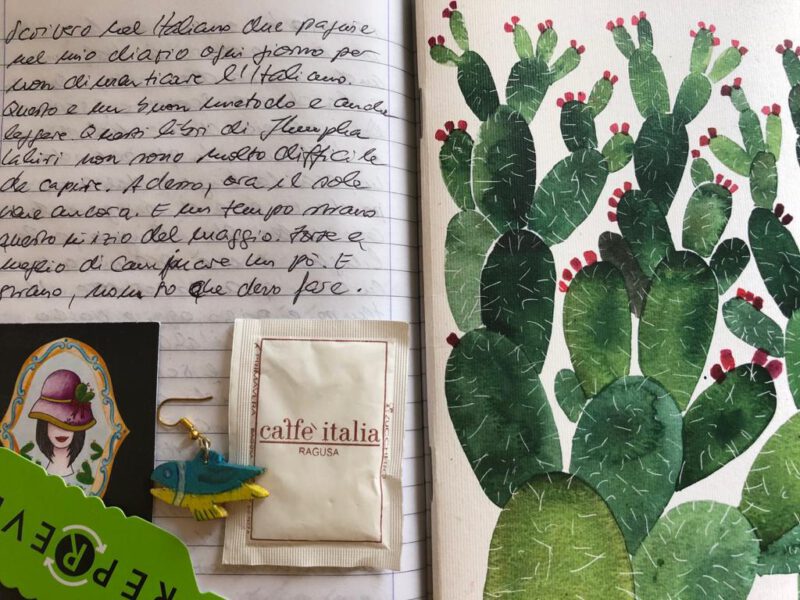 Scrivero nel Italiano due pagine
nel mio diario ogni giorno per
non dimanticare l'Italiano.
Questo e un buon metodo e anche
leggere. Questi libri di Jhumpha
Lahiri non sono molto difficile
da capire. Adesso, ora il sole
viene ancora. E un tempo strano
questo inizio del maggio. Forse e
meglio di un pò. E
strano, non so che devo fare.
caffè italia
RAGUSA
REPREVE